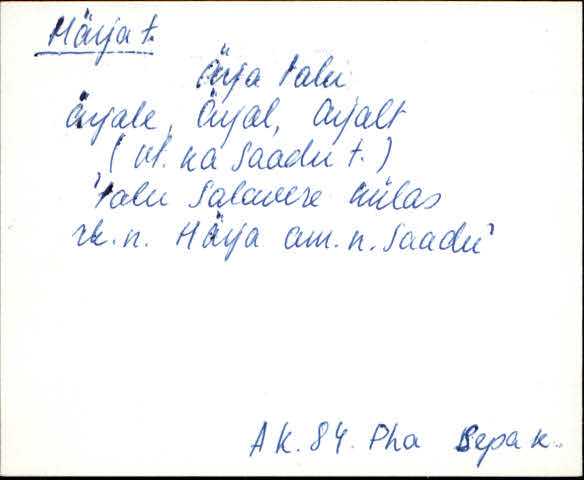 Härja t.
Ärja talu
Ärjale, Ärjal, Ärjalt
(vt. ka Saadu t.)
Talu Salavere külas
rk. n. Härja am. n. Saadu
AK. 84. Pha Sepa k.